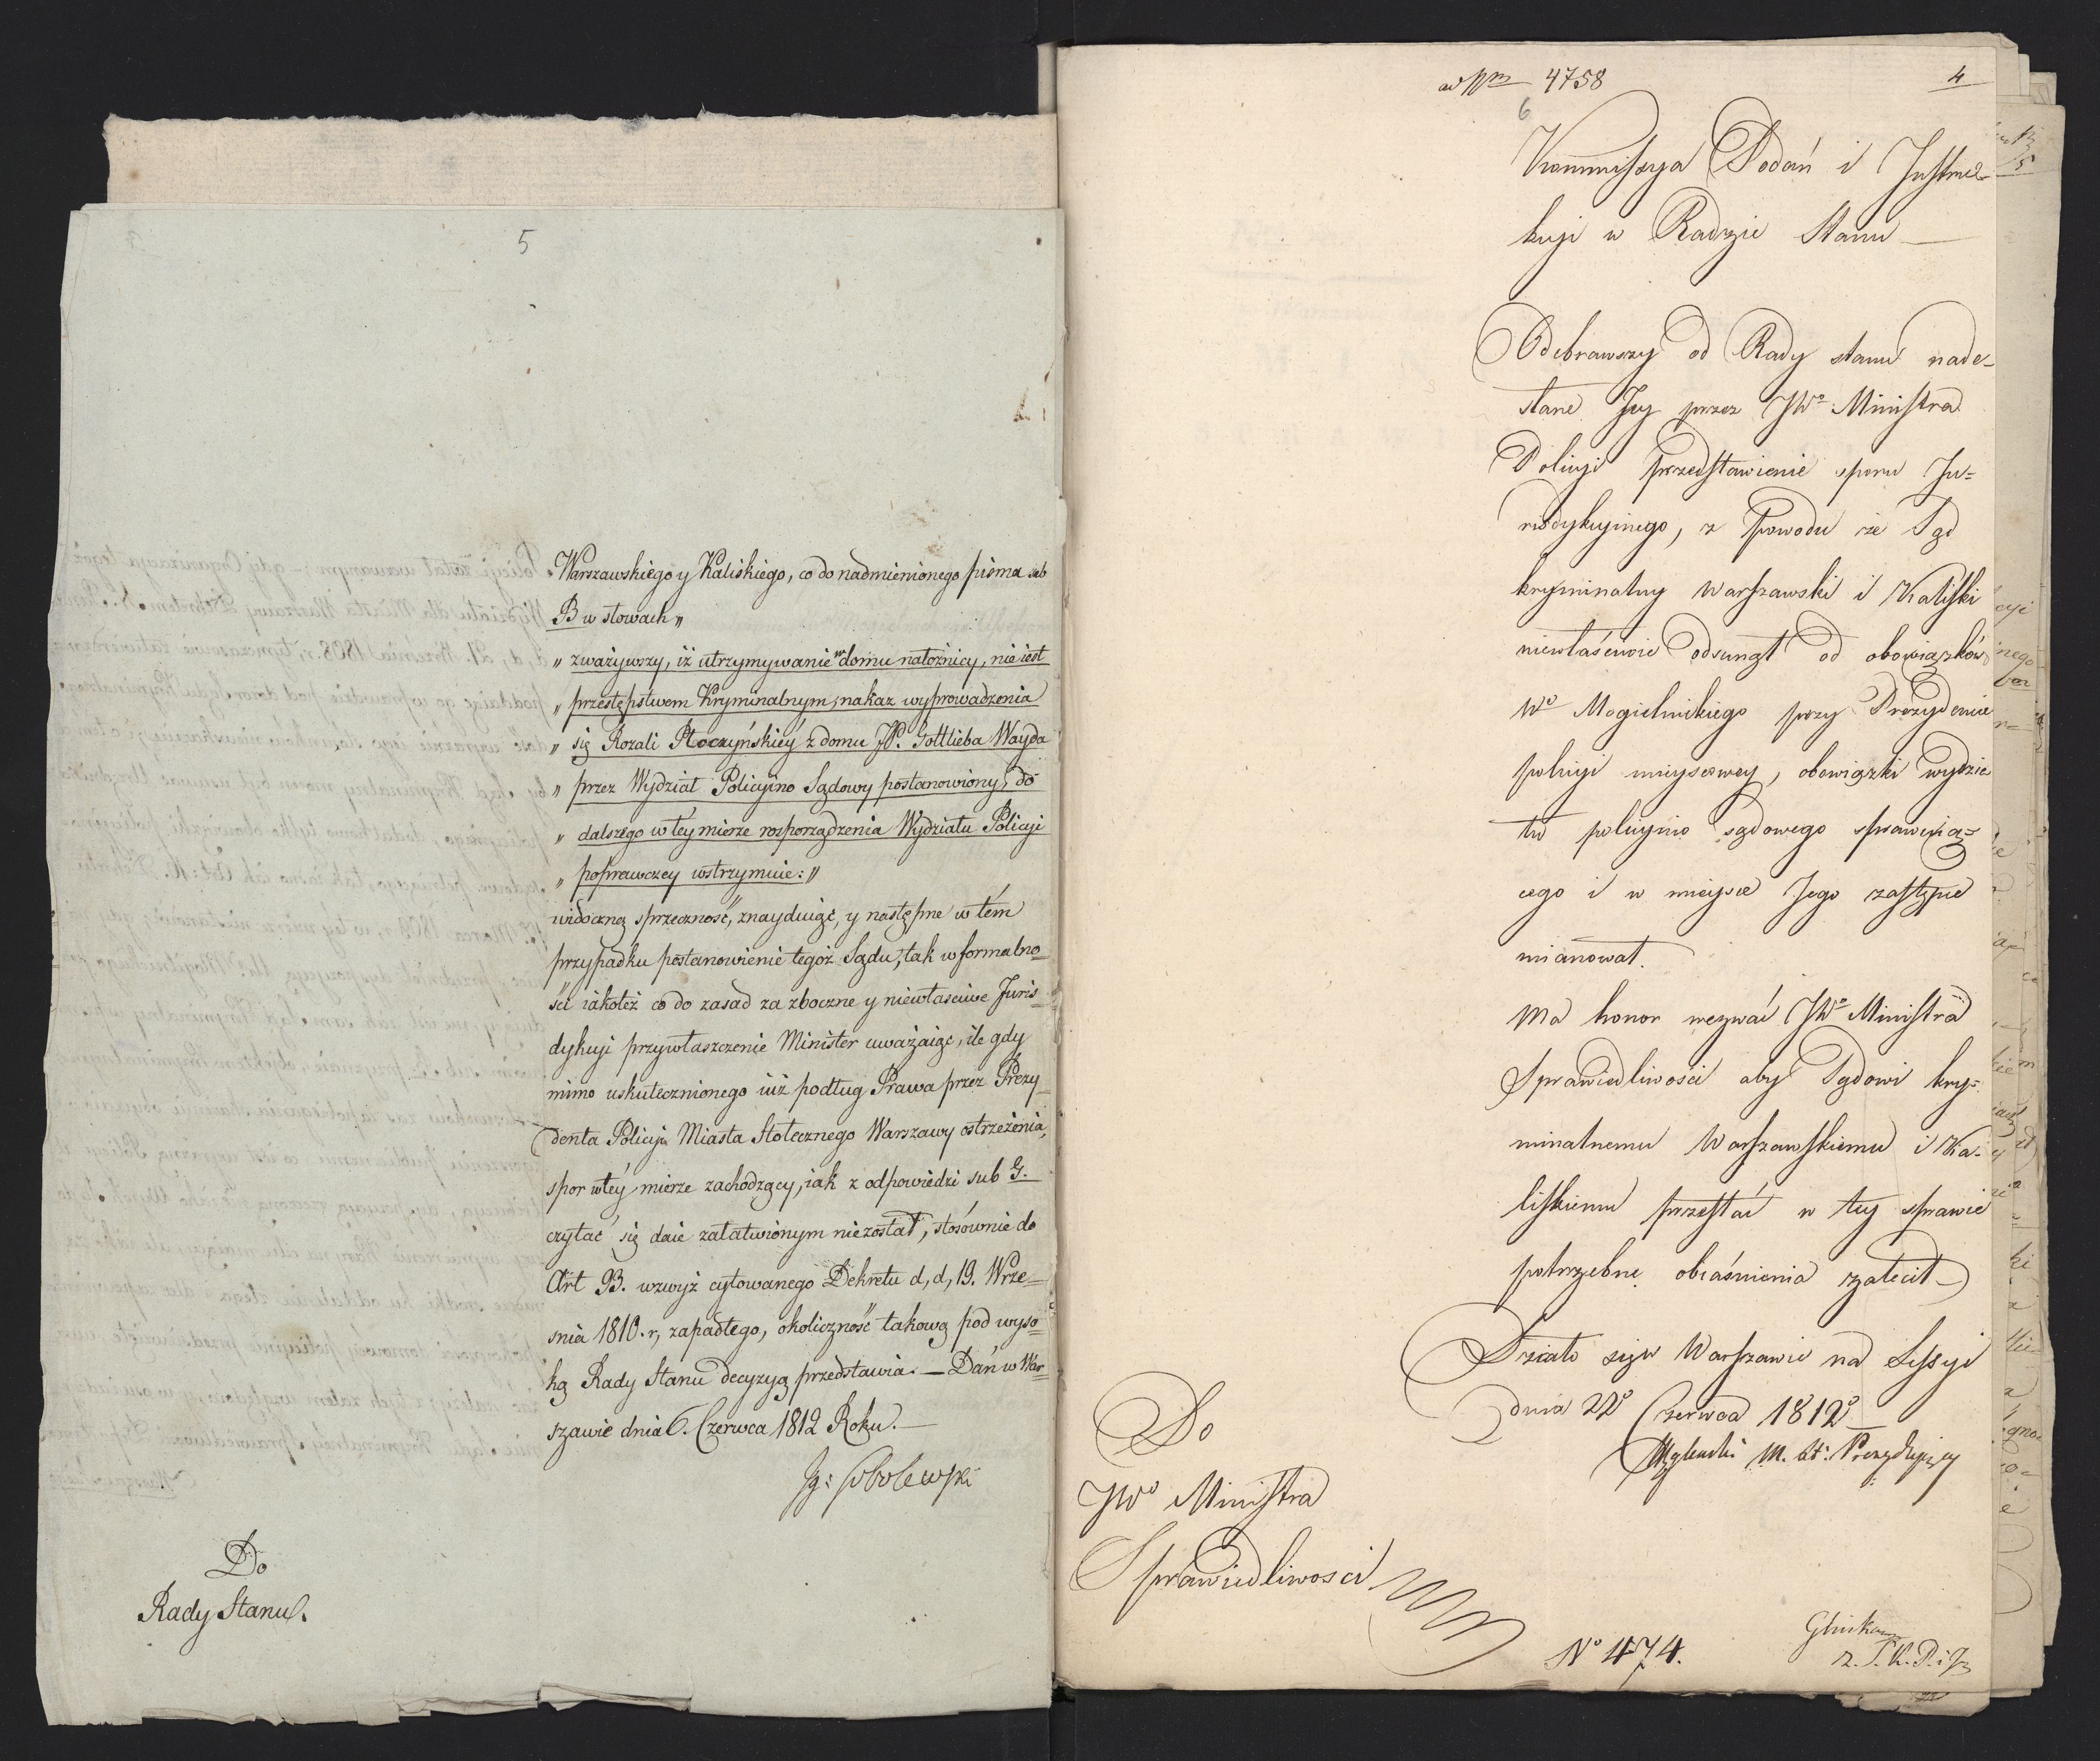 5
Warszawskiego y Kaliskiego, co do nadmienionego pisma sub
B w słowach „
„ zważywszy, iż utrzymywanie w domu nałożnicy, nie iest
„ przestępstwem Kryminalnym, nakaz wyprowadzenia
„ się Rozali Płoczyńskiéy z domu JP. Gottlieba Wayda
„ przez Wydział Policyino Sądowy postanowiony, do
„ dalszego w tey mierze rozporządzenia Wydziału Policyi
„ poprawczey wstrzymuie: „
widoczną sprzeczność, znayduiąc, y następne w tém
przypadku postanowienie tegoż Sądu, tak w formalno-
ści iakoteż co do zasad za zboczne y niewłasciwe Juris-
dykcyi przywłaszczenie Minister uważaiąc, ile gdy
mimo uskutecznionego iuż podług Prawa przez Prezy-
denta Policyi Miasta Stołecznego Warszawy ostrzeżenia,
spor w téy mierze zachodzący, iak z odpowiedzi sub G.
czytać się daie załatwionym niezostał, stósownie do
Art 93. wzwyż cytowanego Dekretu d, d, 19. Wrze-
śnia 1810. r, zapadłego, okoliczność takową pod wyso-
ką Rady Stanu decyzyą przedstawia. — Dań w War-
szawie dnia 6. Czerwca 1812 Roku. —
Jg: Sobolewski
Do
Rady Stanu.
ad Nrm 4758
4
6
Kommissya Podań i Jnstruk-
kcyi w Radzie Stanu —
Odebrawszy od Rady stanu nade-
słane Jey przez JWo Ministra
Policyi przedstawienie sporu Ju-
risdykcyinego, z powodu że Sąd
kryminalny Warszawski i Kaliski
niewłaściwie odsunął od obowiązków
Wo Mogielnickiego przy Prezydencie
policyi mieyscowey, obowiązki wydzia
łu policyino sądowego sprawuią-
cego i w mieysce Jego zastępce
mianował.
Ma honor wezwać JWo Ministra
Sprawiedliwosci aby Sądowi kry-
minalnemu Warszawskiemu i Ka-
liskiemu przesłać w tey sprawie
potrzebne obiaśnienia zalecił —
Działo się w Warszawie na Sessyi
dnia 22o Czerwca 1812o
M. St. Prezyduiący
Do
JWo Ministra
Sprawiedliwosci
No 474.
Glinka
z. S. K. P. i J